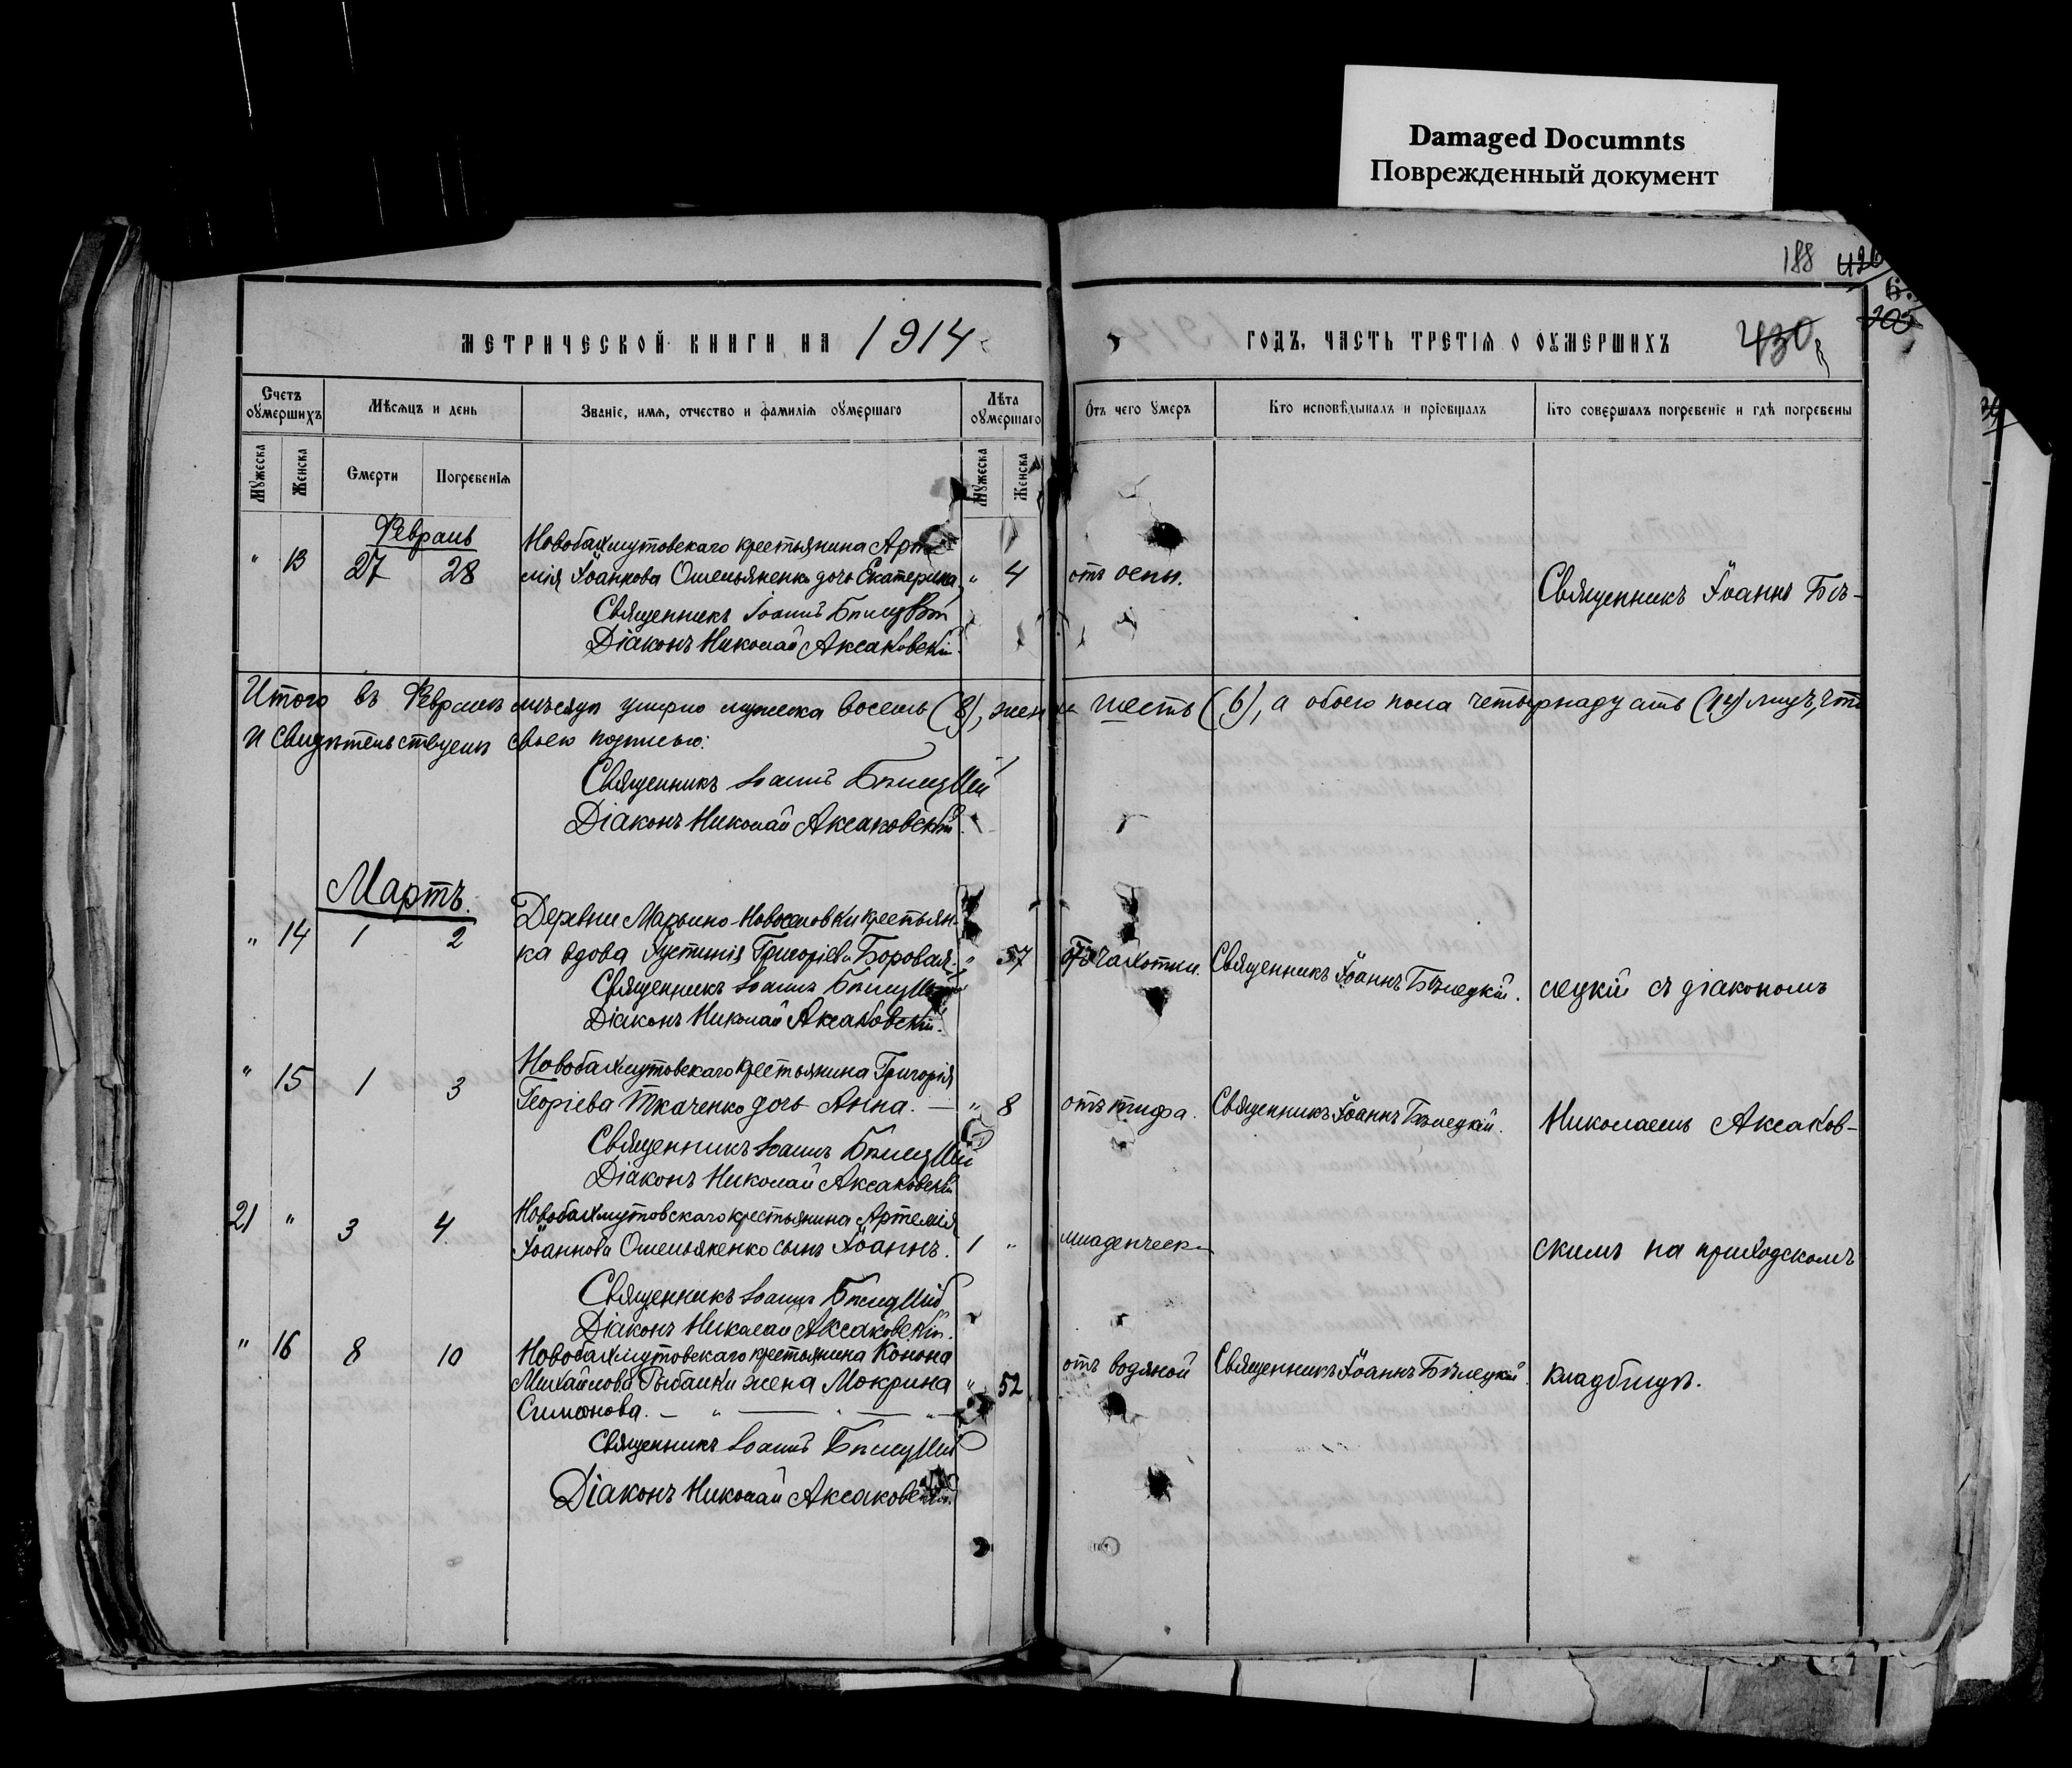 Damaged Documnts
Поврежденный документ
188
426
6.
203
МЕТРИЧЕСКОЙ КНИГИ НА 1914
ГОДЪ, ЧАСТЬ ТРЕТІЯ О ОУМЕРШИХЪ
430
Счетъ оумершихъ
Мѣсяцъ и день
Званіе, имя, отчество и фамилія оумершаго
Лѣта оумершаго
Отъ чего умеръ
Кто исповѣдывалъ и пріобщалъ
Кто совершалъ погребеніе и гдѣ погребены
Мужеска
Женска
Смерти
Погребенія
Мужеска
Женска
Февраль
Новобахмутовскаго крестьянина Арте-
" 13 27 28 мія Іоаннова Омельяненко дочь Екатерина. " 4 отъ оспы.
Священникъ Іоаннъ Бѣ-
Священникъ Іоаннъ Бѣлецкій
Діаконъ Николай Аксаковскій.
Итого въ Февралѣ мѣсяцѣ умерло мужеска восемь (8), женска шесть (6), а обоего пола четырнадцать (14) лицъ, что
и свидѣтельствуемъ своею подписью:
Священникъ Іоаннъ Бѣлецкій
Діаконъ Николай Аксаковскій.
Мартъ.
Деревни Марьино-Новоселовки крестьян-
" 14 1 2 ка вдова Іустинія Григоріева Боровая. " 57 отъ чахотки. Священникъ Іоаннъ Бѣлецкій. лецкій съ діакономъ
Священникъ Іоаннъ Бѣлецкій
Діаконъ Николай Аксаковскій.
Новобахмутовскаго крестьянина Григорія
" 15 1 3 Георгіева Ткаченко дочь Анна. — " 8 отъ тифа. Священникъ Іоаннъ Бѣлецкій. Николаемъ Аксаков-
Священникъ Іоаннъ Бѣлецкій
Діаконъ Николай Аксаковскій
Новобахмутовскаго крестьянина Артемія
21 " 3 4 Іоаннова Омельяненко сынъ Іоаннъ. 1 " младенческ. скимъ на приходскомъ
Священникъ Іоаннъ Бѣлецкій
Діаконъ Николай Аксаковскій.
Новобахмутовскаго крестьянина Конона
" 16 8 10 Михайлова Рыбалки жена Мокрина " 52 отъ водяной Священникъ Іоаннъ Бѣлецкій. кладбищѣ.
Симонова. — " — " — " —
Священникъ Іоаннъ Бѣлецкій
Діаконъ Николай Аксаковскій.